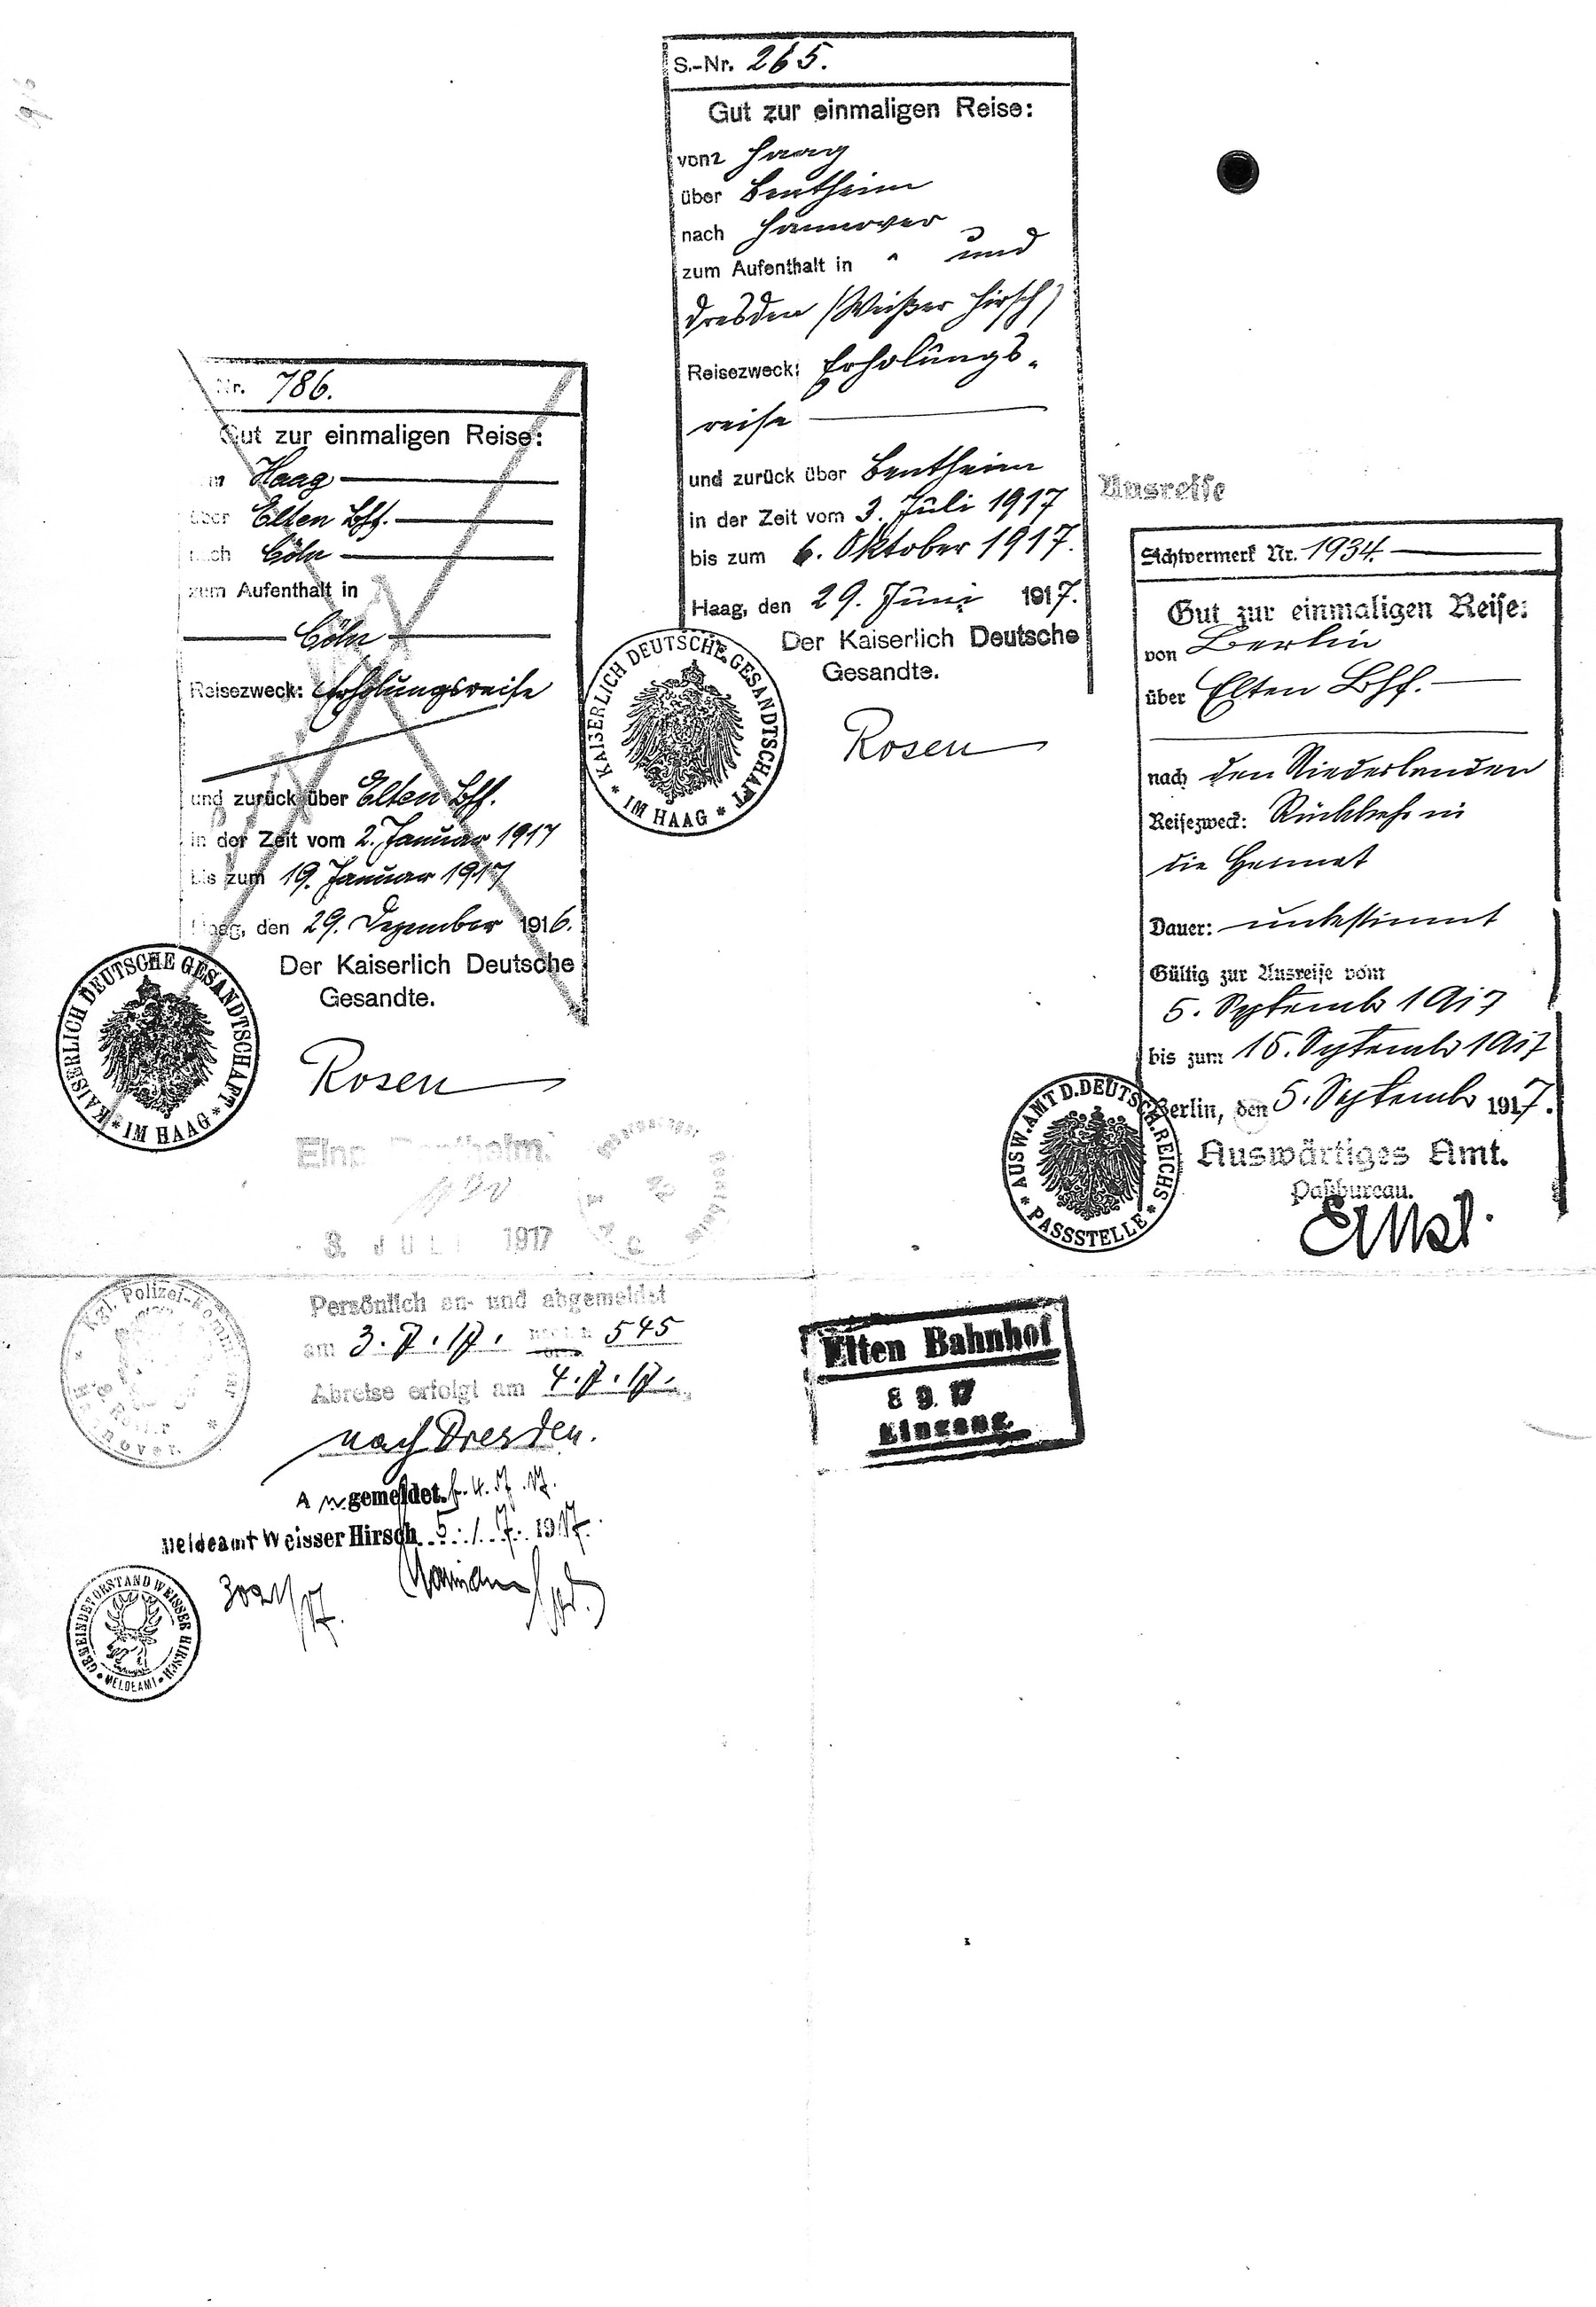 S.-Nr. 265.
Gut zur einmaligen Reise:
von Haag
über Bentheim
nach Hannover
zum Aufenthalt in " und
Dresden (Weißer Hirsch)
Reisezweck: Erholungs-
reise
und zurück über Bentheim
in der Zeit vom 3. Juli 1917
bis zum 6. Oktober 1917.
Haag, den 29. Juni 1917.
Der Kaiserlich Deutsche
Gesandte.
Rosen
KAISERLICH DEUTSCHE GESANDTSCHAFT * IM HAAG *
Nr. 786.
Gut zur einmaligen Reise:
Haag
über Elten Bhf.
nach Cöln
zum Aufenthalt in
Cöln
Reisezweck: Erholungsreise
und zurück über Elten Bhf.
in der Zeit vom 2. Januar 1917
bis zum 19. Januar 1917
Haag, den 29. Dezember 1916.
Der Kaiserlich Deutsche
Gesandte.
Rosen
KAISERLICH DEUTSCHE GESANDTSCHAFT * IM HAAG *
Ausreise
Sichtvermerk Nr. 1934.
Gut zur einmaligen Reise:
von Berlin
über Elten Bhf.
nach den Niederlanden
Reisezweck: Rückkehr in
die Heimat
Dauer: unbestimmt
Gültig zur Ausreise vom
5. September 1917
bis zum 15. September 1917
Berlin, den 5. September 1917.
Auswärtiges Amt.
Paßbureau.
AUSW. AMT D. DEUTSCH. REICHS * PASSSTELLE *
Bentheim
3. JULI 1917
Kgl. Polizei-Kommissar
8. Revier
Hannover
Persönlich an- und abgemeldet
am 3.7.17. 545
Abreise erfolgt am 4.7.17.
nach Dresden.
Angemeldet. 4.7.17.
Meldeamt Weisser Hirsch 5./7. 1917.
GEMEINDEVORSTAND WEISSER HIRSCH
MELDEAMT
Elten Bahnhof
8 9. 17
Eingang